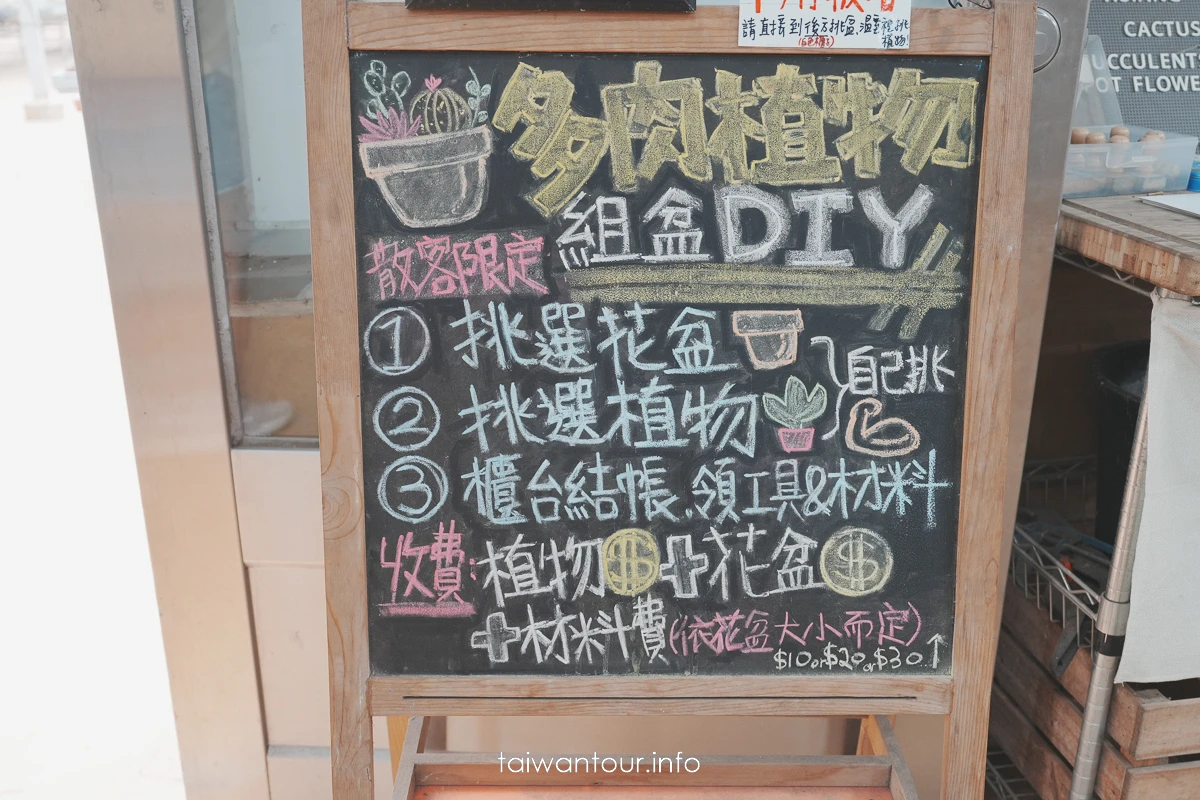 請直接到後方挑盆,溫室裡挑植物
多肉植物
組盆DIY
散客限定
① 挑選花盆
② 挑選植物
自己挑
③ 櫃台結帳、領工具&材料
收費: 植物$+花盆$
+材料費(依花盆大小而定)
$10or$20or$30↑
CACTUS
UCCULENTS
OT FLOWE
taiwantour.info